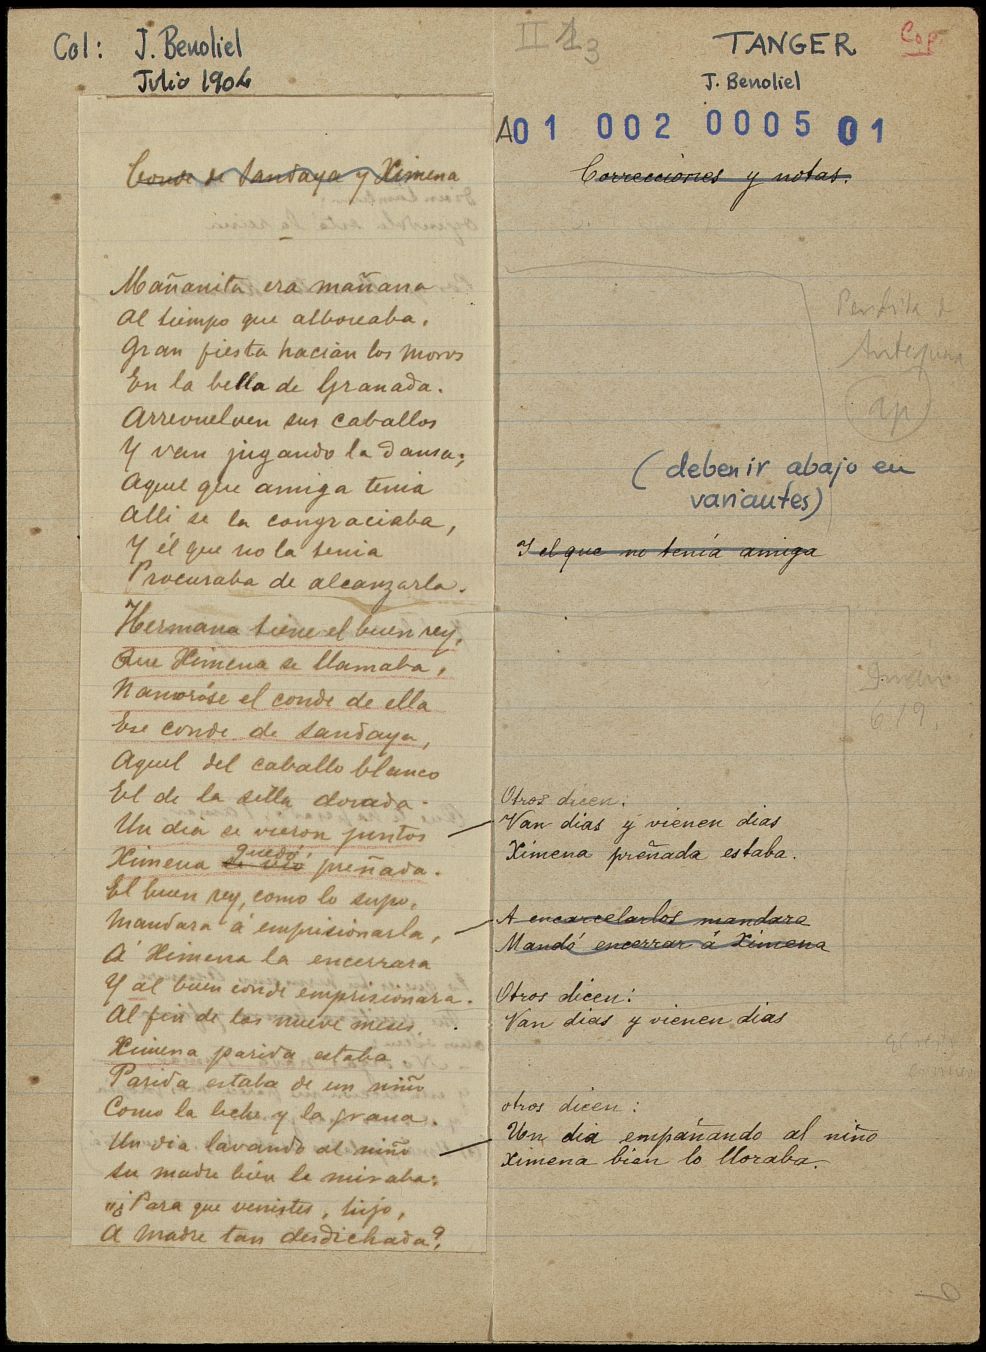 Col: J. Benoliel
Julio 1904
TANGER
J. Benoliel
Cop
A01 002 0005 01
Conde de Sandaya y Ximena
Mañanita era mañana
Al tiempo que alboreaba,
Gran fiesta hacian los moros
En la bella de Granada.
Arrevuelven sus caballos
Y van jugando la danza;
Aquel que amiga tenia
Alli se la congraciaba,
Y él que no la tenia
Procuraba de alcanzarla.
Hermana tiene el buen rey,
Que Ximena se llamaba,
Namoróse el conde de ella
Ese conde de Sandaya,
Aquel del caballo blanco
El de la silla dorada.
Un dia se vieron juntos
Ximena se vió quedó preñada.
El buen rey, como lo supo,
Mandara á emprisionarla,
Á Ximena la encerrara
Y al buen conde emprisionara.
Al fin de los nueve meses,
Ximena parida estaba
Parida estaba de un niño
Como la leche y la grana.
Un dia lavando al niño
Su madre bien le miraba;
"¿Para que venistes, hijo,
A madre tan desdichada?
Correcciones y notas.
Perdida de
Antequera
(deben ir abajo en
variantes)
Y el que no tenía amiga
619
Otros dicen:
Van dias y vienen dias
Ximena preñada estaba.
A encarcelarlos mandara
Mandó encerrar á Ximena
Otros dicen:
Van dias y vienen dias
otros dicen:
Un dia empañando al niño
Ximena bien lo lloraba.